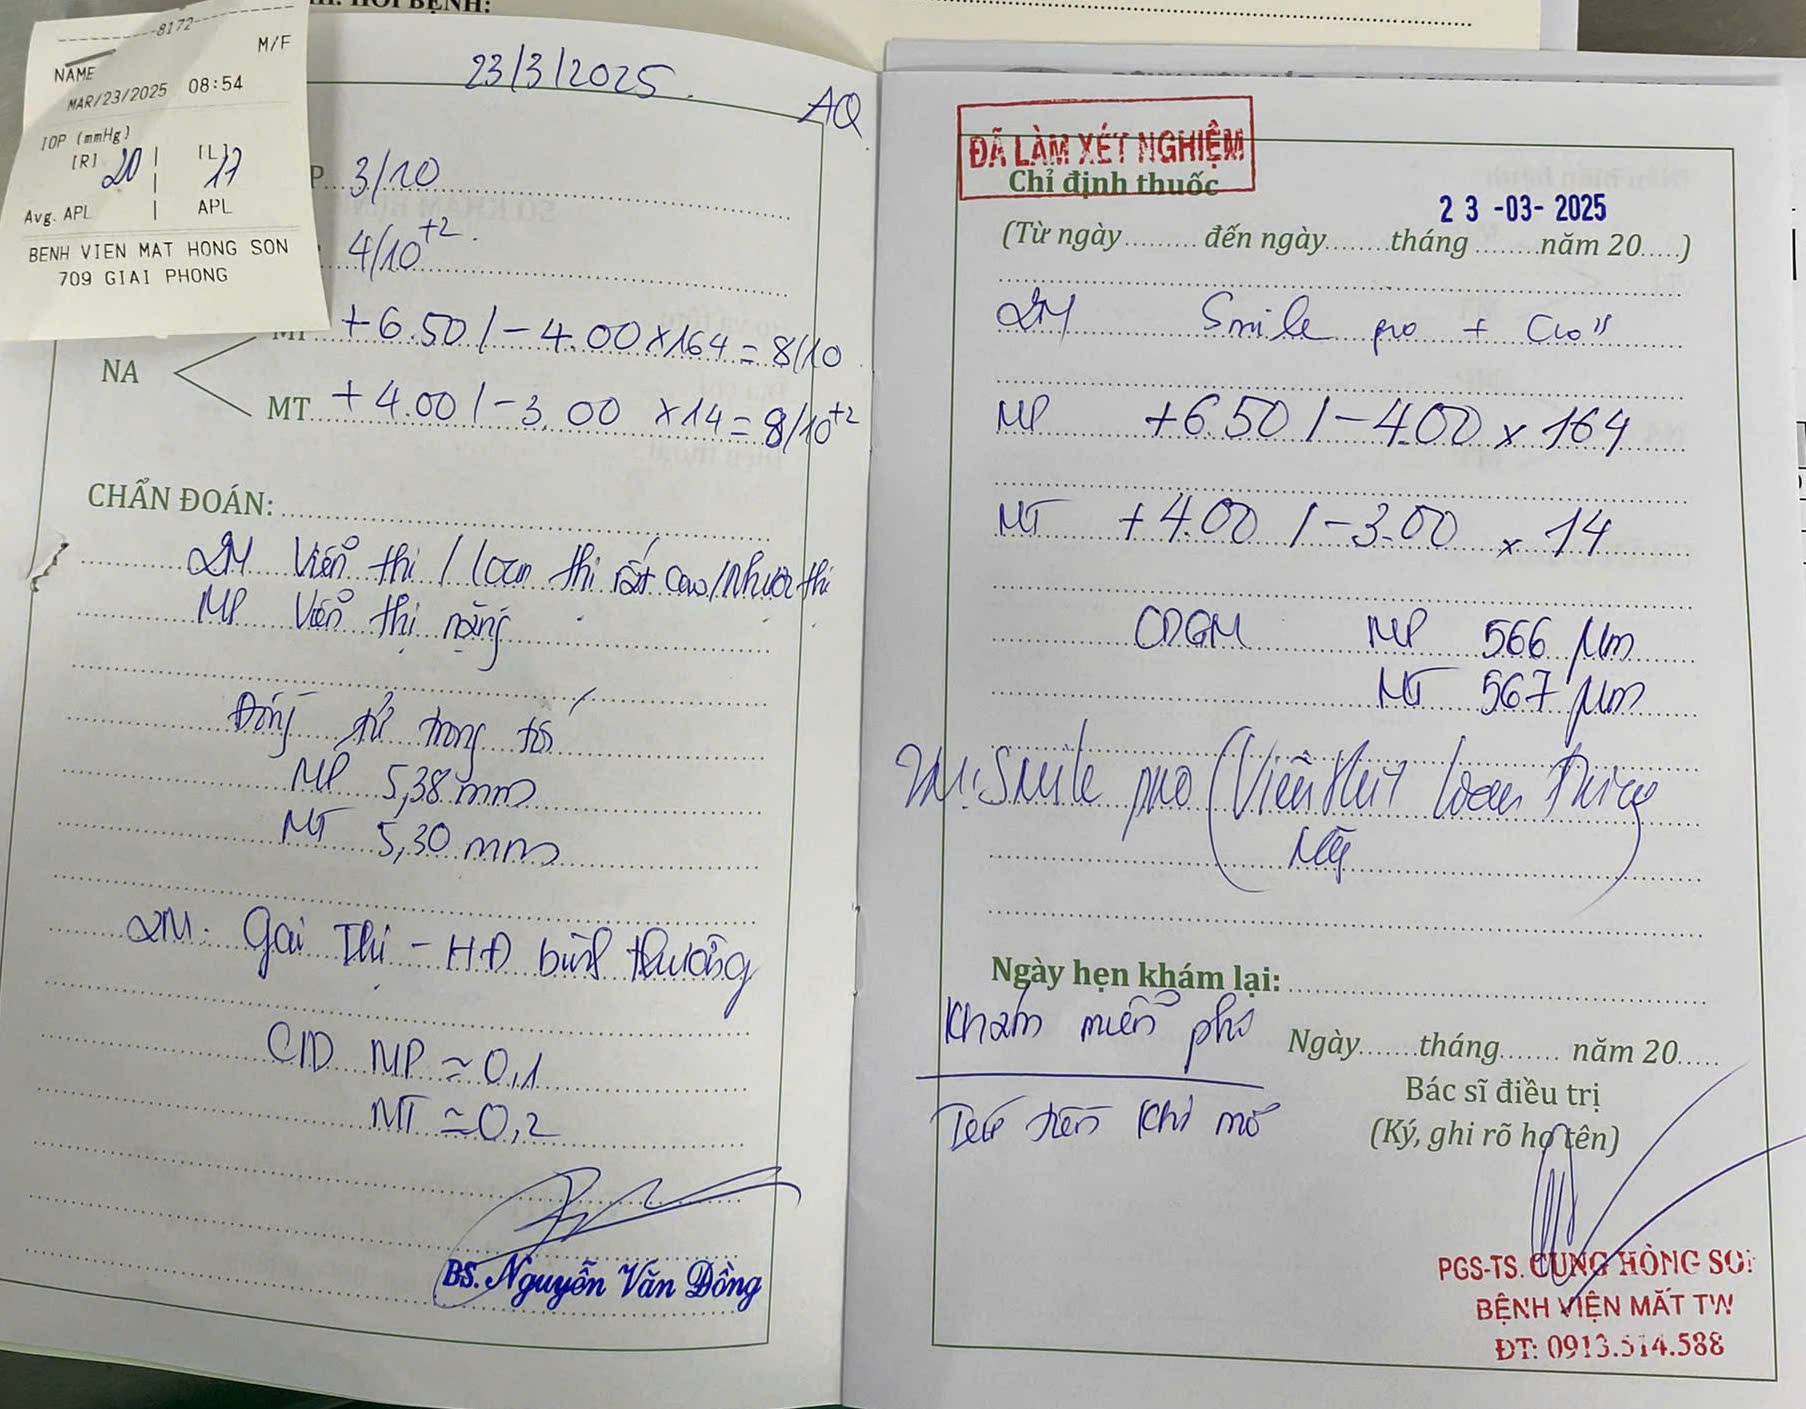 8172
M/F
NAME
MAR/23/2025 08:54
IOP (mmHg)
[R] | [L]
20 | 17
Avg. APL | APL
BENH VIEN MAT HONG SON
709 GIAI PHONG
HỎI BỆNH:
23/3/2025.
AQ
P 3/10
4/10 +2.
MP +6.50 / -4.00 x 164 = 8/10
NA
MT +4.00 / -3.00 x 14 = 8/10 +2
CHẨN ĐOÁN:
2M Viễn thị / loạn thị rất cao / Nhược thị
MP Viễn thị nặng
Đồng tử trong tối
MP 5,38 mm
MT 5,30 mm
2M. Gai Thị - HĐ bình thường
C/D MP ≈ 0,1
MT ≈ 0,2
BS. Nguyễn Văn Đồng
ĐÃ LÀM XÉT NGHIỆM
Chỉ định thuốc
23-03-2025
(Từ ngày......... đến ngày.......tháng ........năm 20.....)
2M Smile pro +
MP +6.50 / -4.00 x 164
MT +4.00 / -3.00 x 14
CDGM MP 566 µm
MT 567 µm
2M: Smile pro (Viễn thị loạn
Ngày hẹn khám lại:
Khám miễn phí
Ngày.......tháng....... năm 20.....
Bác sĩ điều trị
tiền khi mổ
(Ký, ghi rõ họ tên)
PGS-TS. CUNG HỒNG SƠN
BỆNH VIỆN MẮT TW
ĐT: 0913.514.588